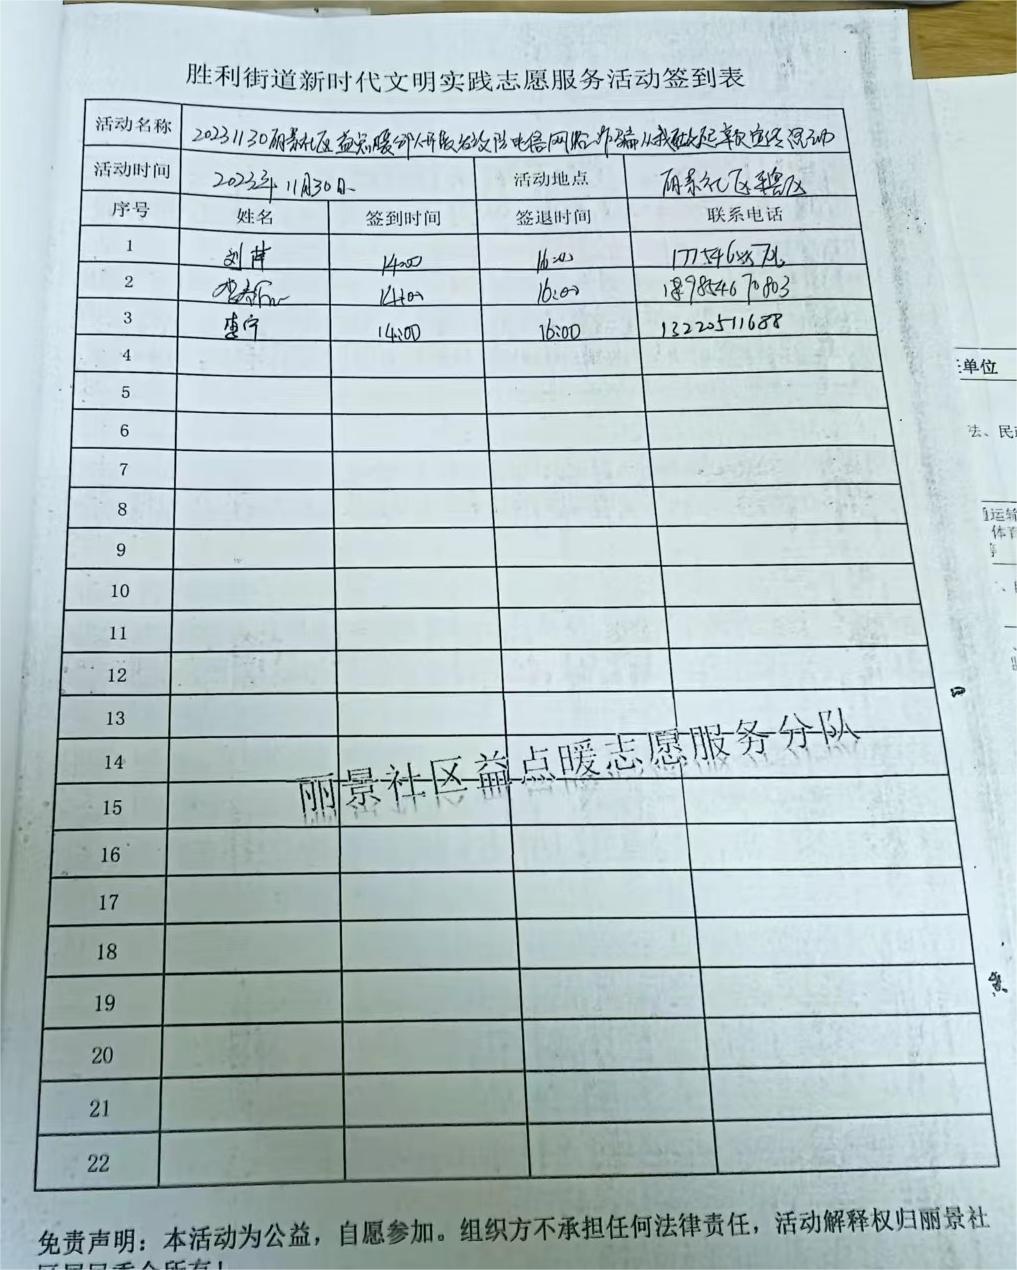 胜利街道新时代文明实践志愿服务活动签到表
活动名称 20231130丽景社区益点暖分队开展 电信网络诈骗从我做起 宣传活动
活动时间 2023年11月30日 活动地点 丽景社区辖区
序号 姓名 签到时间 签退时间 联系电话
1 刘萍 14:00 16:00
2 14:00 16:00 18985467803
3 惠宁 14:00 16:00 13220511688
4
5
6
7
8
9
10
11
12
13
14
15
丽景社区益点暖志愿服务分队
16
17
18
19
20
21
22
免责声明：本活动为公益，自愿参加。组织方不承担任何法律责任，活动解释权归丽景社
区居民委会所有！
单位
法、民政
通运输
体育